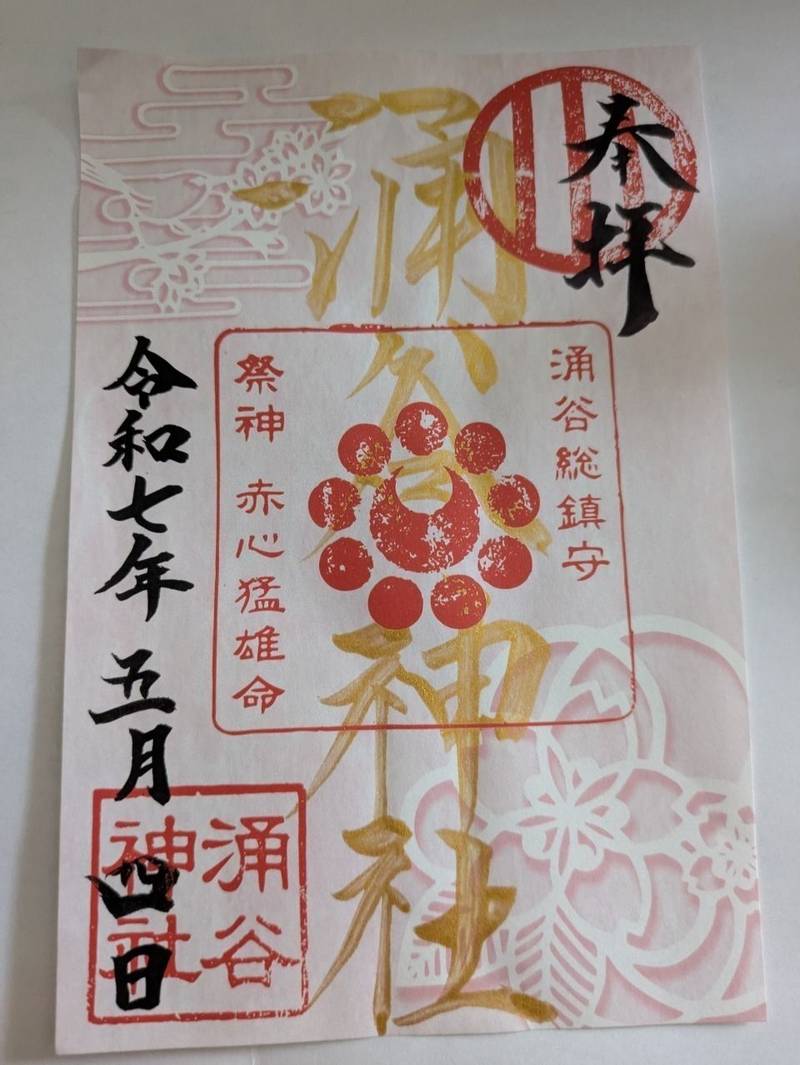 奉拝
涌谷総鎮守
涌谷神社
祭神 赤心猛雄命
令和七年 五月 四日
涌谷
神社